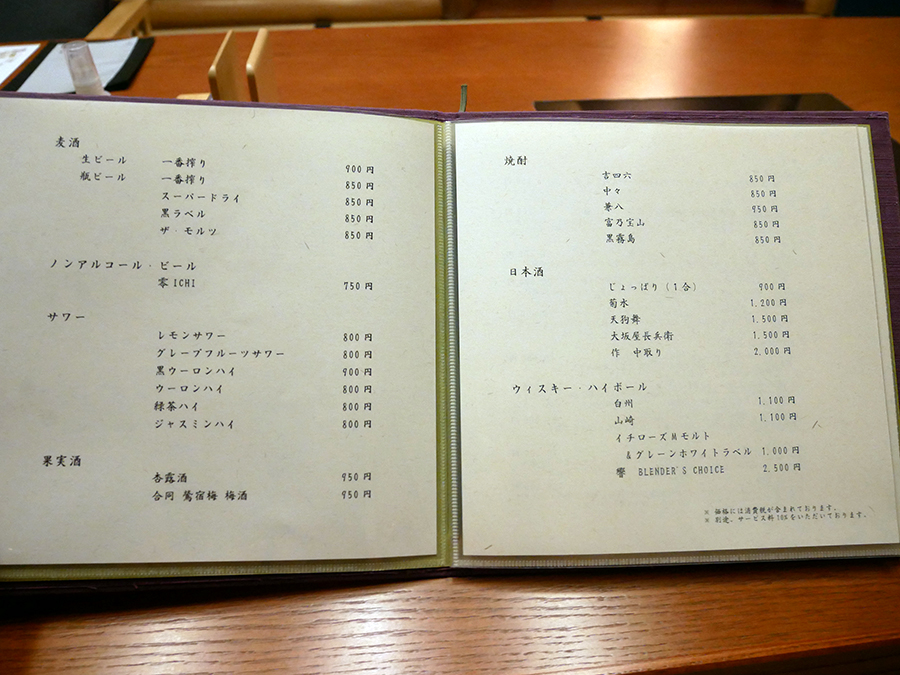 麦酒
生ビール 一番搾り 900円
瓶ビール 一番搾り 850円
スーパードライ 850円
黒ラベル 850円
ザ・モルツ 850円
ノンアルコール・ビール
零ICHI 750円
サワー
レモンサワー 800円
グレープフルーツサワー 800円
黒ウーロンハイ 900円
ウーロンハイ 800円
緑茶ハイ 800円
ジャスミンハイ 800円
果実酒
杏露酒 950円
合同 鶯宿梅 梅酒 950円
焼酎
吉四六 850円
中々 850円
兼八 950円
富乃宝山 850円
黒霧島 850円
日本酒
じょっぱり(1合) 900円
菊水 1,200円
天狗舞 1,500円
大坂屋長兵衛 1,500円
作 中取り 2,000円
ウィスキー・ハイボール
白州 1,100円
山崎 1,100円
イチローズMモルト
&グレーンホワイトラベル 1,000円
響 BLENDER'S CHOICE 2,500円
※ 価格には消費税が含まれております。
※ 別途、サービス料10%をいただいております。